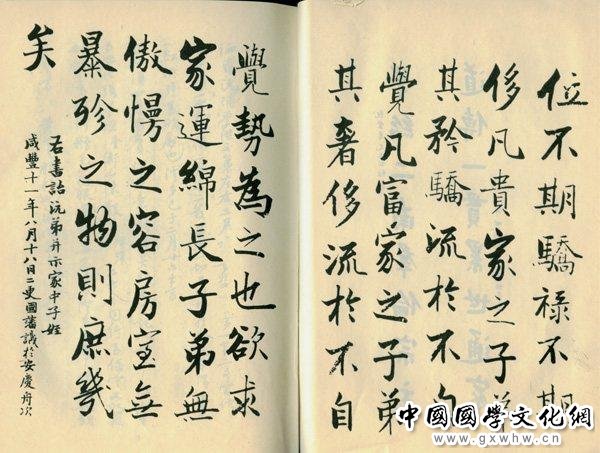 位不期驕祿不期
侈凡貴家之子弟
其矜驕流於不自
覺凡富家之子弟
其奢侈流於不自
覺勢為之也欲求
家運綿長子弟無
傲慢之容房室無
暴殄之物則庶幾
矣
右書詒沅弟并示家中子姪
咸豐十一年八月十八日二更國藩識於安慶舟次
中國國學文化網
www.gxwhw.cn